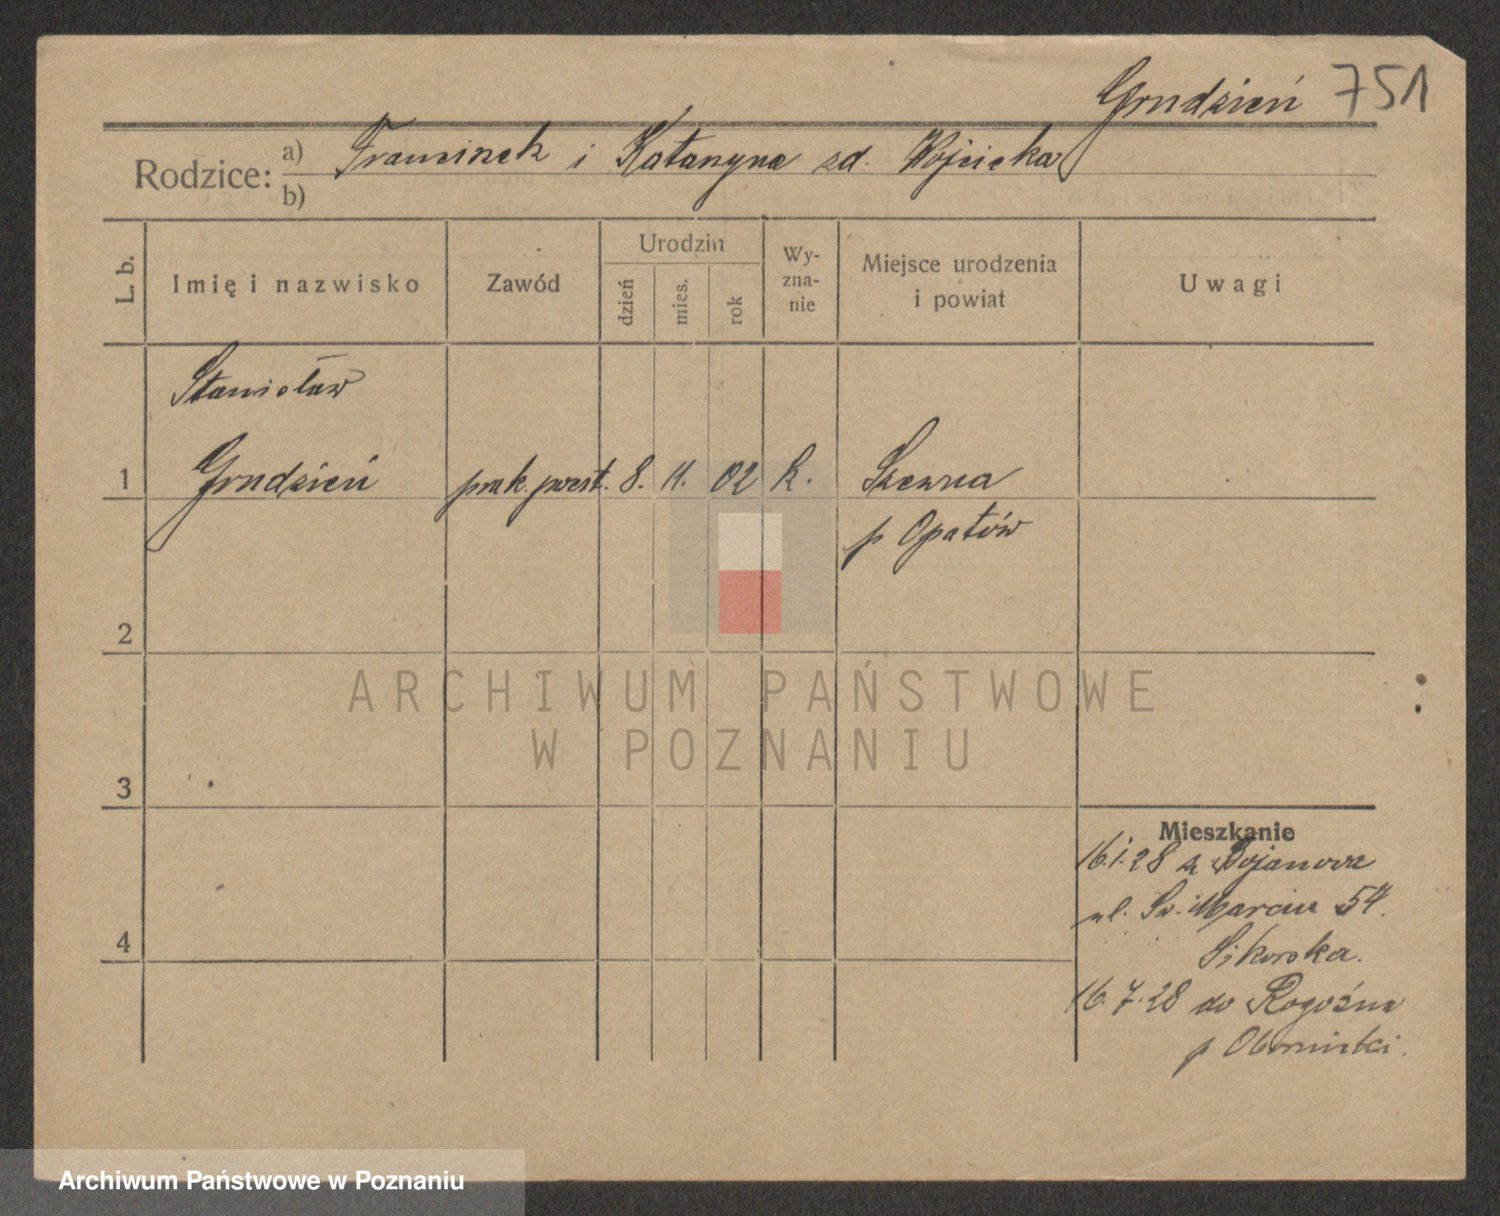 Grudzień 751
Rodzice: a) Franciszek i Katarzyna zd. Wójcicka
b)
L. b.
Imię i nazwisko
Zawód
Urodzin
dzień
mies.
rok
Wy-
zna-
nie
Miejsce urodzenia
i powiat
Uwagi
Stanisław
1 Grudzień prak. poczt. 8. 11. 02 R. Szewna
p Opatów
2
3
4
ARCHIWUM PAŃSTWOWE
W POZNANIU
Mieszkanie
16.1.28 z Bojanowa
ul. Św. Marcin 54.
Sikorska.
16.7.28 do Rogoźna
p Oborniki.
Archiwum Państwowe w Poznaniu